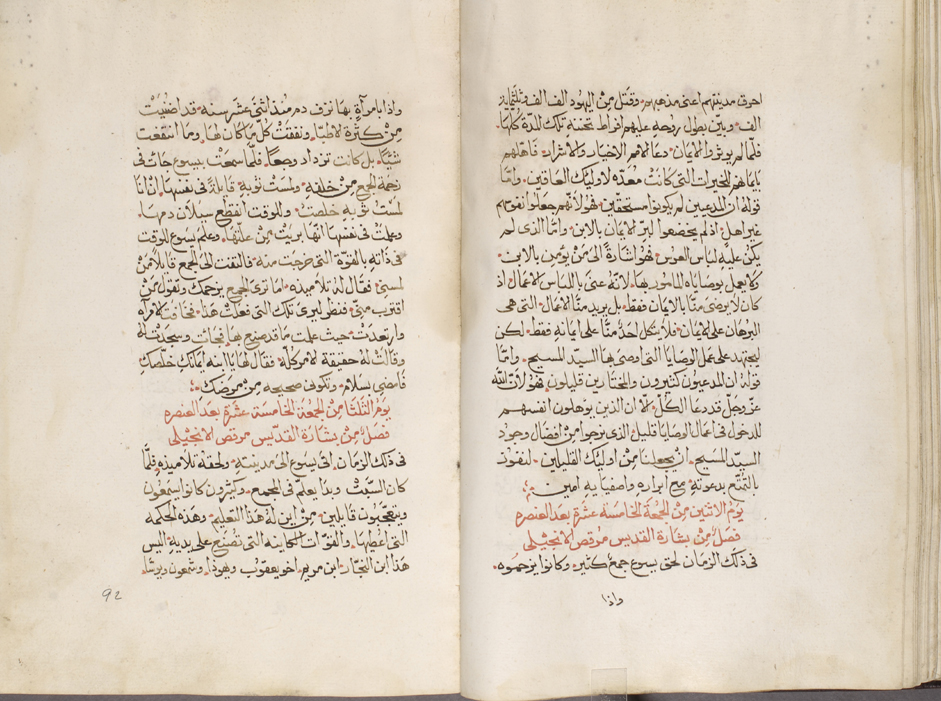 احرق مدينتهم اعنى مذهبهم وقتل من اليهود الف الف وثلثماية
الف وبايّن بطول روحه عليهم افراط تحننه تلك المدة كلها
فلمّا لم يوثروا الايمان دعا الامم الاخيار والاشرار فاهلهم
بايمانهم للخيرات التى كانت معدّه لاوليك العاقين وامّا
قوله ان المدعيين لم يكونوا مستحقّين فهو لانّهم جعلوا نفوسهم
غير اهلٍ اذ لم يخضعوا لبرّ الايمان بالابن وامّا الذى لم
يكن عليه لباس العرس فهو اشارة الى من يومن بالابن
ولا يعمل بوصاياه المامور بها لانّه عنى باللباس الاعمال اذ
كان لا يرضى منّا بالايمان فقط بل يريد منّا الاعمال التى هى
البرهان على الايمان فلا يتّكل احدٌ منّا على ايمانه فقط لكن
ليجتهد على عمل الوصايا التى اوصى بها السيّد المسيح وامّا
قوله ان المدعيون كثيرون والمختارين قليلون فهو لان الله
عزّ وجلّ قد دعا الكلّ الا ان الذين يوهلون انفسهم
للدخول فى اعمال الوصايا قليل الذى نرجوا من افضال وجود
السيّد المسيح ان يجعلنا من اوليك القليلين لنفوز
بالتمتّع بدعوته مع ابراره واصفيايه امين
يوم الاثنين من الجمعة الخامسة عشرة بعد العنصره
فصلٌ من بشارة القديس مرقص الانجيلى
فى ذلك الزمان لحق يسوع جمعٌ كثير وكانوا يزحموه
واذا
واذا بامرآةٍ بها نزف دم منذ اثنى عشر سنه قد اضنيت
من كثرة الاطبّا ونفقت كلّ ما كان لها وما انتفعت
شيّيا بل كانت تزداد وجعاً فلمّا سمعت بيسوع جات فى
زحمة الجمع من خلفه ولمست ثوبه قايلة فى نفسها ان انا
لمست ثوبه خلصت وللوقت انقطع سيلان دمها
وعلمت فى نفسها انّها بريت من علّتها وعلم يسوع للوقت
فى ذاته بالقوّة التى خرجت منه فالتفت الى الجمع قايلاً من
لمسنى فقال له تلاميذه اما ترى الجمع يزحمك وتقول من
اقترب منّى فنظر ليرى تلك التى فعلت هذا فخافت الامرآه
وارتعدت حيث علمت ما قد صنع بها فجات وسجدت له
وقالت له حقيقة الامر كلّه فقال لها يا ابنه ايمانك خلّصك
فامضى بسلام وتكونى صحيحه من مرضك
يوم الثلثا من الجمعة الخامسة عشرة بعد العنصره
فصلٌ من بشارة القديس مرقص الانجيلى
فى ذلك الزمان اتى يسوع الى مدينته ولحقه تلاميذه فلمّا
كان السبت وبدا يعلّم فى المجمع وكثيرون كانوا يسمعون
ويتعجّبون قايلين من اين له هذا التعليم وهذه الحكمه
التى اعطيها والقوّات الكاينه التى تصنع على يديه اليس
هذا ابن النجّار ابن مريم اخو يعقوب ويهوذا وشمعون ويوسّا
92